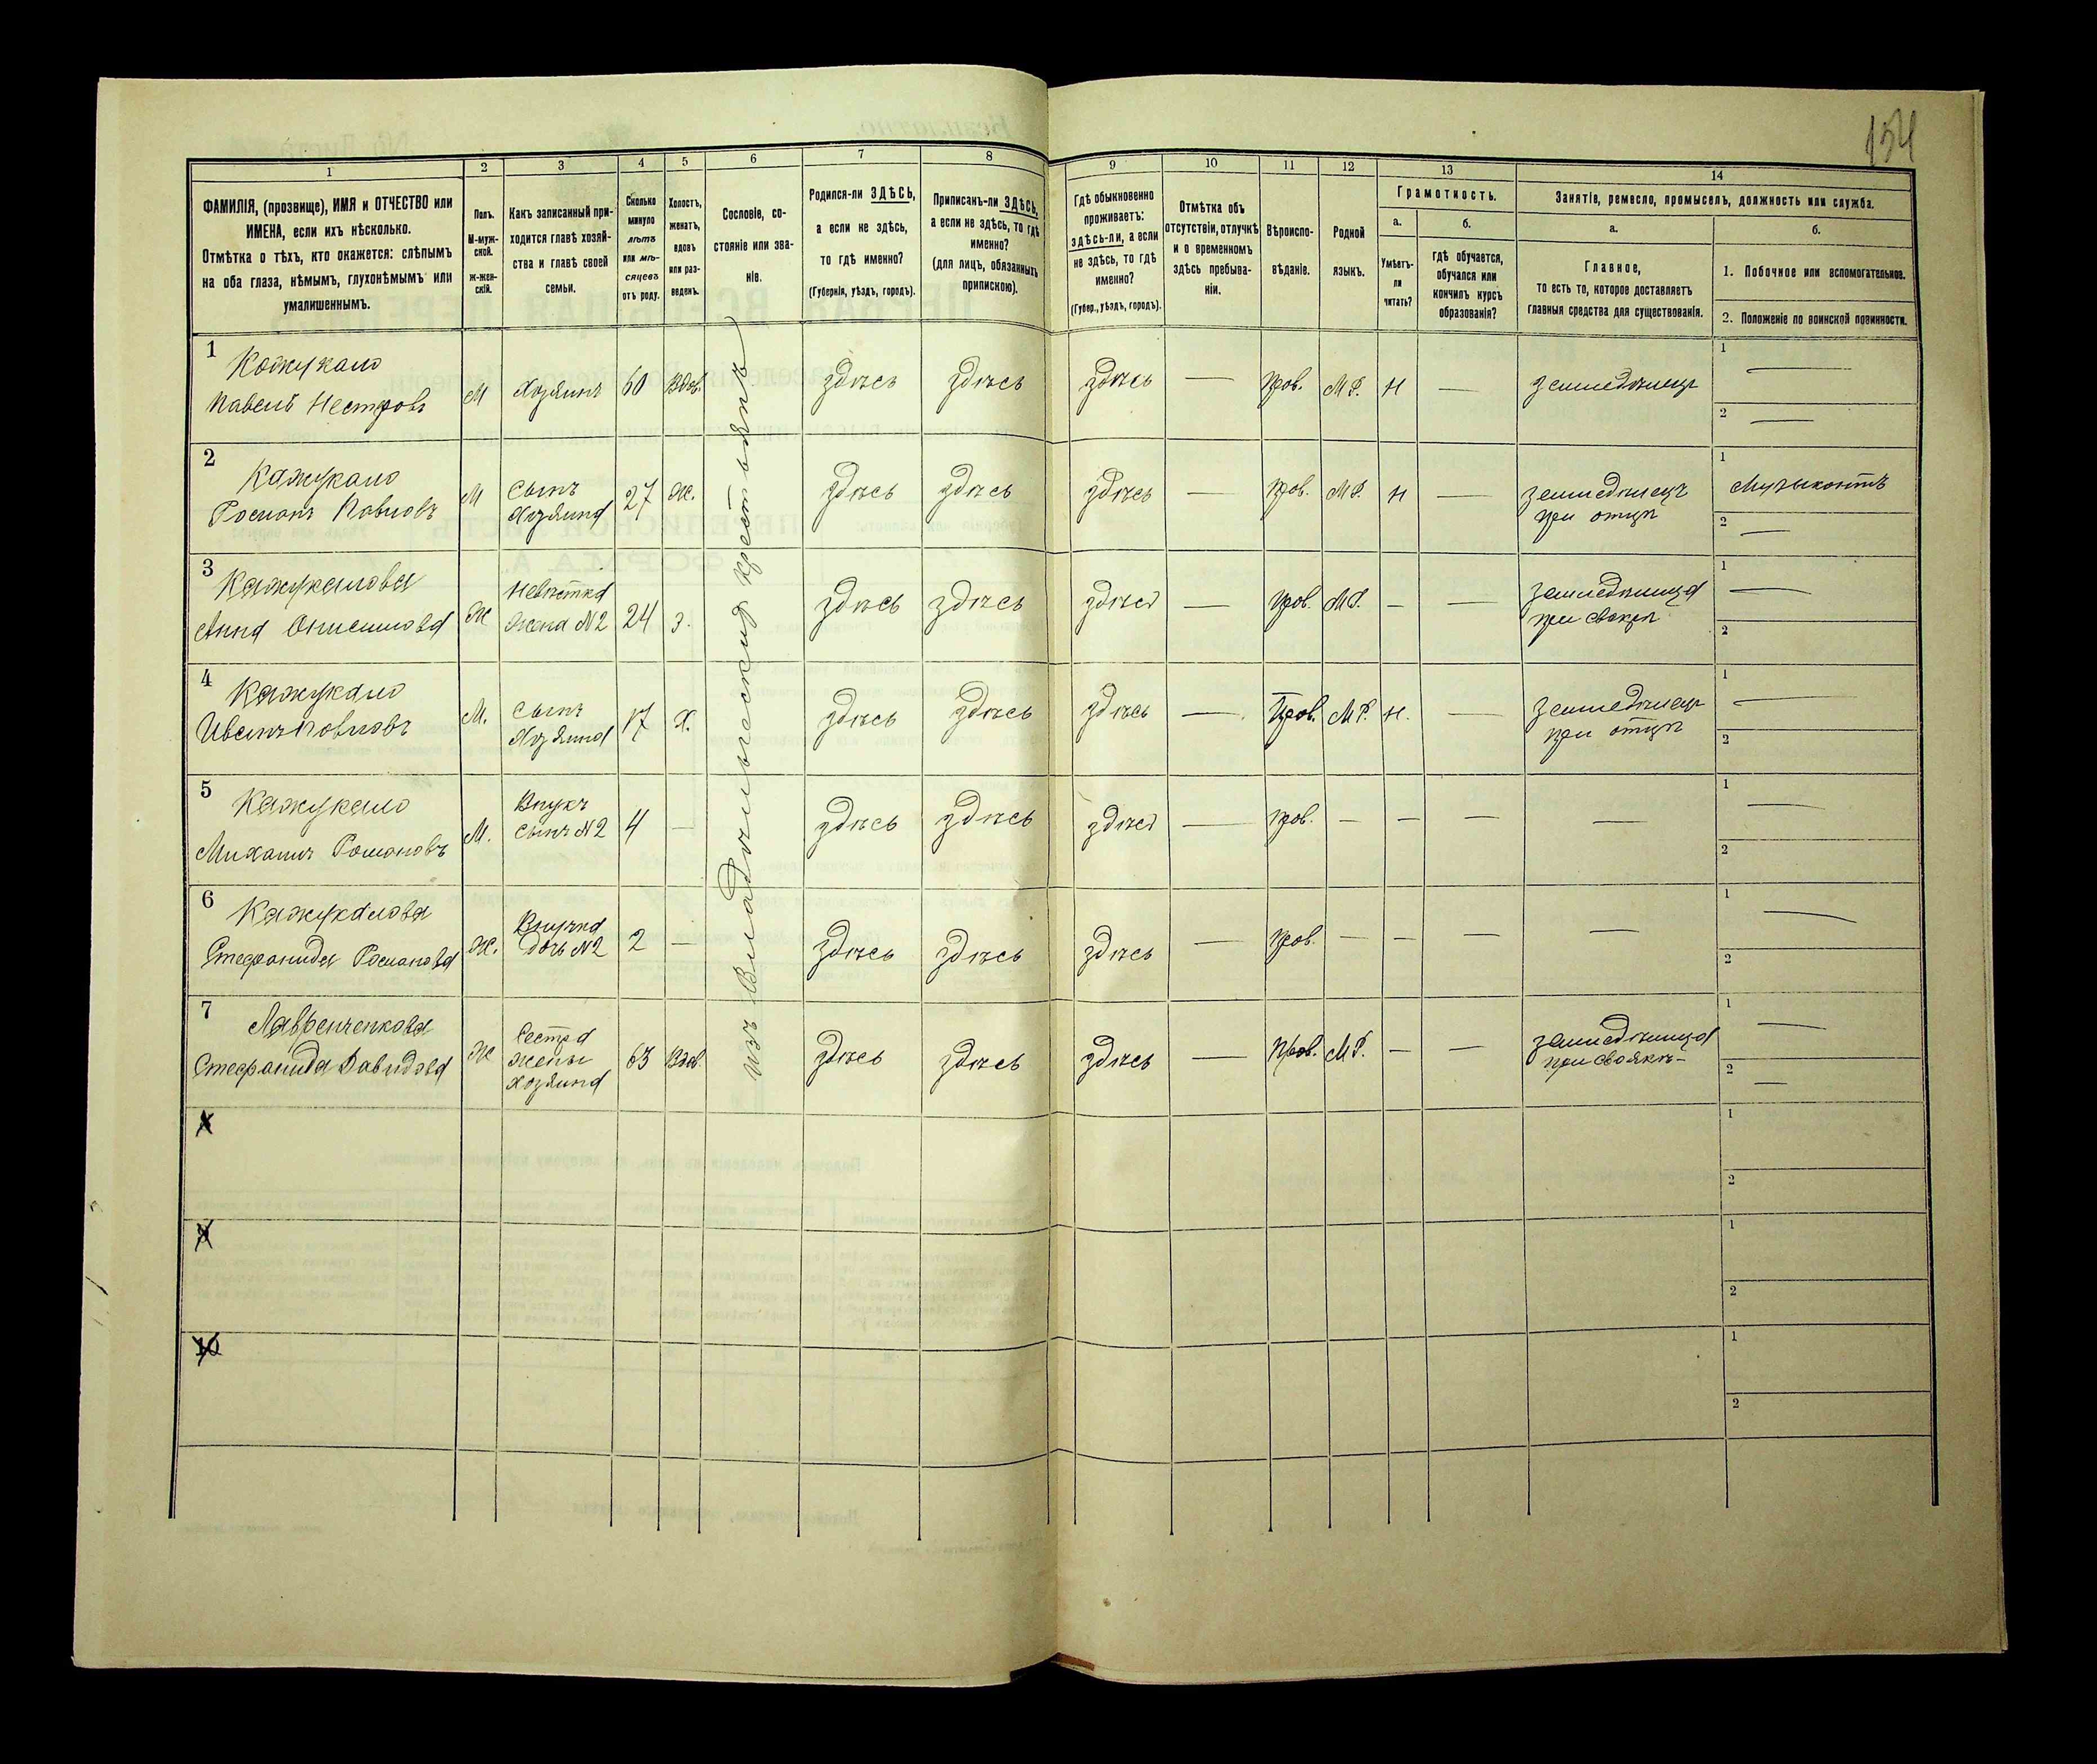 154
1
2
3
4
5
6
7
8
9
10
11
12
13
14
ФАМИЛІЯ, (прозвище), ИМЯ и ОТЧЕСТВО или
ИМЕНА, если ихъ нѣсколько.
Отмѣтка о тѣхъ, кто окажется: слѣпымъ
на оба глаза, нѣмымъ, глухонѣмымъ или
умалишеннымъ.
Полъ.
М-муж-
ской.
ж-жен-
скій.
Какъ записанный при-
ходится главѣ хозяй-
ства и главѣ своей
семьи.
Сколько
минуло
лѣтъ
или мѣ-
сяцевъ
отъ роду.
Холостъ,
женатъ,
вдовъ
или раз-
веденъ.
Сословіе, со-
стояніе или зва-
ніе.
Родился-ли ЗДѢСЬ,
а если не здѣсь,
то гдѣ именно?
(Губернія, уѣздъ, городъ).
Приписанъ-ли ЗДѢСЬ,
а если не здѣсь, то гдѣ
именно?
(для лицъ, обязанныхъ
припискою).
Гдѣ обыкновенно
проживаетъ:
здѣсь-ли, а если
не здѣсь, то гдѣ
именно?
(Губер., уѣздъ, городъ).
Отмѣтка объ
отсутствіи, отлучкѣ
и о временномъ
здѣсь пребыва-
ніи.
Вѣроиспо-
вѣданіе.
Родной
языкъ.
Грамотность.
а.
Умѣетъ-
ли
читать?
б.
гдѣ обучается,
обучался или
кончилъ курсъ
образованія?
Занятіе, ремесло, промыселъ, должность или служба.
а.
Главное,
то есть то, которое доставляетъ
главныя средства для существованія.
б.
1. Побочное или вспомогательное.
2. Положеніе по воинской повинности.
изъ Владѣльческихъ крестьянъ
1
Кожукало
Павелъ Нестеровъ
М
Хозяинъ
60
Вдов.
здѣсь
здѣсь
здѣсь
—
Прав.
М.Р.
Н
—
земледѣлецъ
1 —
2 —
2
Кажукало
Романъ Павловъ
М
Сынъ
Хозяина
27
Ж.
здѣсь
здѣсь
здѣсь
—
Прав.
М.Р.
Н
—
земледѣлецъ
при отцѣ
1
Музыкантъ
2 —
3
Кажукалова
Анна Онисимова
Ж
Невѣстка
Жена №2
24
З.
здѣсь
здѣсь
здѣсь
—
Прав.
М.Р.
—
—
земледѣлица
при свекрѣ
1 —
2
4
Кажукало
Иванъ Павловъ
М.
Сынъ
Хозяина
17
Х.
здѣсь
здѣсь
здѣсь
—
Прав.
М.Р.
Н.
—
земледѣлецъ
при отцѣ
1 —
2
5
Кажукало
Михаилъ Романовъ
М.
Внукъ
Сынъ №2
4
—
здѣсь
здѣсь
здѣсь
—
Прав.
—
—
—
—
1 —
2
6
Кажукалова
Стефанида Романова
Ж.
Внучка
Дочь №2
2
—
здѣсь
здѣсь
здѣсь
—
Прав.
—
—
—
—
1 —
2
7
Лавренченкова
Стефанида Давидова
Ж
Сестра
Жены
Хозяина
63
Вдов.
здѣсь
здѣсь
здѣсь
—
Прав.
М.Р.
—
—
земледѣлица
при своякѣ
1 —
2 —
8
1
2
9
1
2
10
1
2